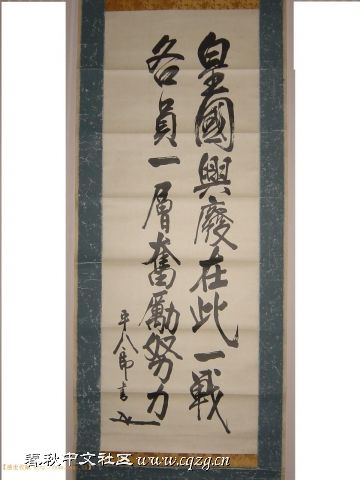 皇國興廢在此一戦
各員一層奮勵努力
平八郎書
春秋中文社区 www.cqzg.cn